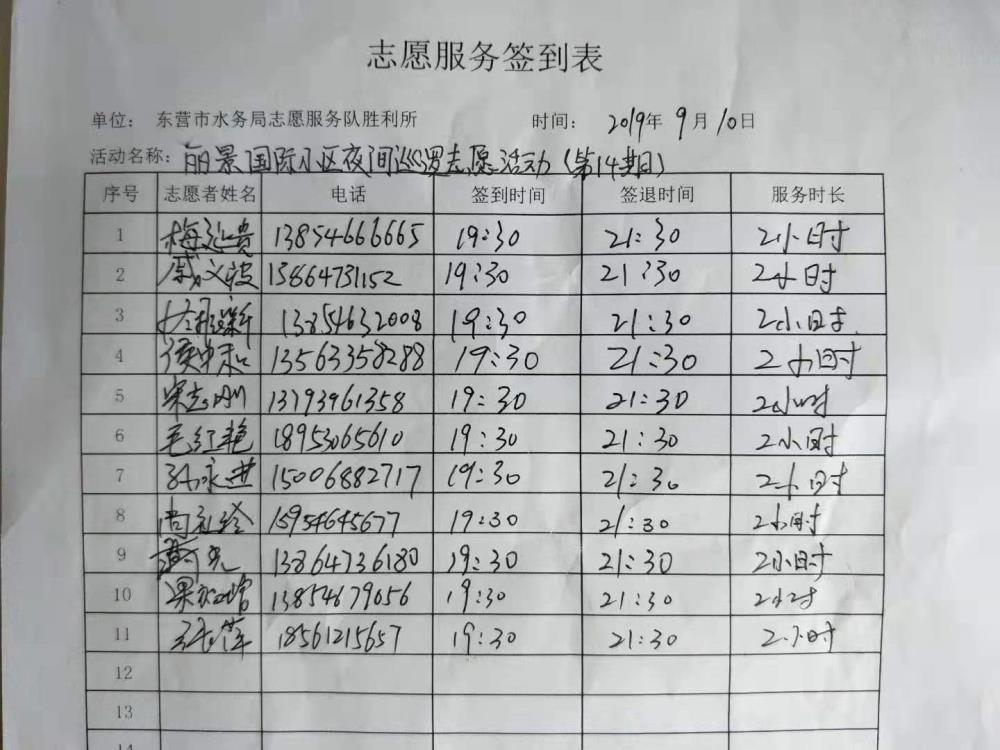 志愿服务签到表
单位： 东营市水务局志愿服务队胜利所 时间： 2019年 9月 10日
活动名称：丽景国际小区夜间巡逻志愿活动（第14期）
序号 志愿者姓名 电话 签到时间 签退时间 服务时长
1 13854666665 19:30 21:30 2小时
2 13864731152 19:30 21:30 2小时
3 13854632008 19:30 21:30 2小时
4 13563358288 19:30 21:30 2小时
5 宋志刚 13793961358 19:30 21:30 2小时
6 毛红艳 18953065610 19:30 21:30 2小时
7 孙永进 15006882717 19:30 21:30 2小时
8 15954645677 19:30 21:30 2小时
9 13864736180 19:30 21:30 2小时
10 13854679056 19:30 21:30 2小时
11 18561215657 19:30 21:30 2小时
12
13
14